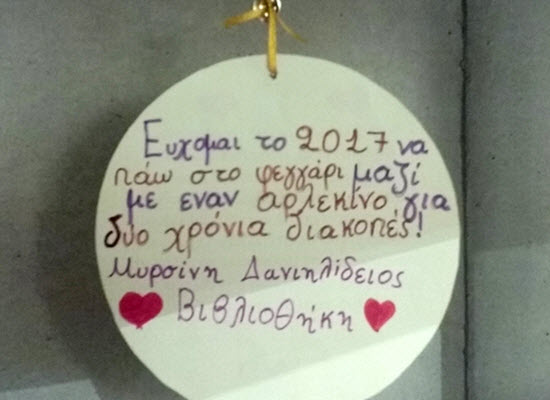 Ευχομαι το 2017 να
πάω στο φεγγάρι μαζί
με εναν αρλεκίνο για
δύο χρόνια διακοπές!
Μυρσίνη Δανιηλίδειος
Βιβλιοθήκη